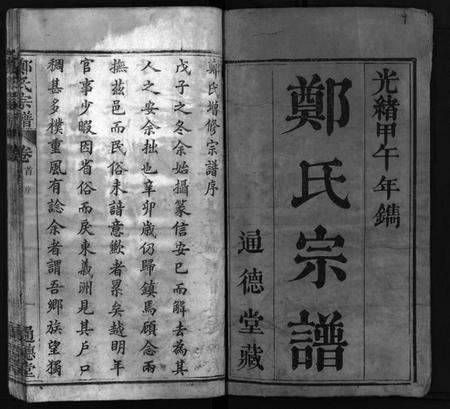 光緒甲午年鐫
鄭氏宗譜
通德堂藏
鄭氏增修宗譜序
戊子之冬余始攝篆信安已而解去為其
人之安余拙也辛卯歲仍歸鎮焉顧念兩
撫茲邑而民俗未諳意歉者累矣越明年
官事少暇因省俗而戾東義洲見其戶口
稠甚多樸重風有諗余者謂吾鄉族望獨
鄭氏宗譜 卷首 序
通德堂